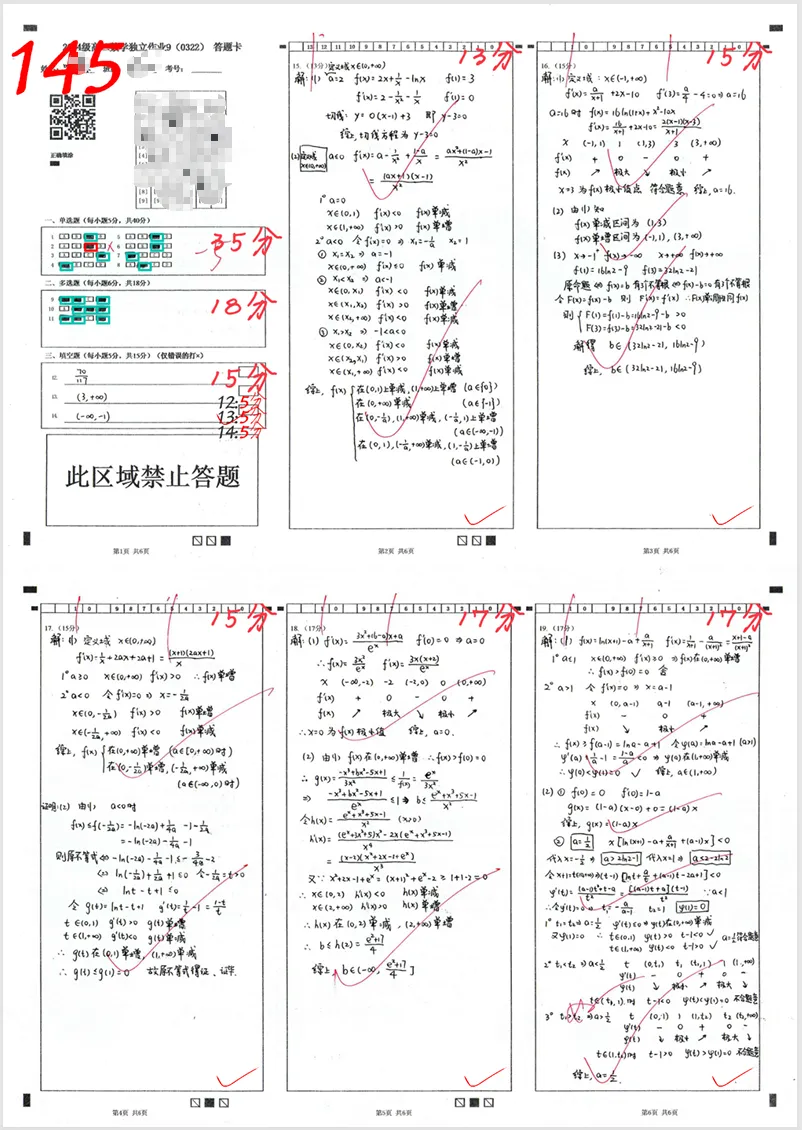 145
数学独立作业9（0322） 答题卡
考号：
正确填涂
一、单选题（每小题5分，共40分）
35分
二、多选题（每小题6分，共18分）
18分
三、填空题（每小题5分，共15分）（仅错误的打×）
15分
12. 70/117
12:5分
13. (3,+∞)
13:5分
14. (-∞,-1)
14:5分
此区域禁止答题
第1页 共6页
13分
15.（13分）定义域x∈(0,+∞)
解:(1) a=2 f(x)=2x+1/x-lnx f(1)=3
f'(x)=2-1/x²-1/x f'(1)=0
切线: y=0(x-1)+3 即 y-3=0
综上,切线方程为 y-3=0
(2) 定义域x∈(0,+∞) a<0 f'(x)=a-1/x²+(1-a)/x=(ax²+(1-a)x-1)/x²
=(ax+1)(x-1)/x²
1° a=0
x∈(0,1) f'(x)<0 f(x)单减
x∈(1,+∞) f'(x)>0 f(x)单增
2° a<0 令f'(x)=0 ⇒ x₁=-1/a x₂=1
① x₁=x₂ ⇒ a=-1
x∈(0,+∞) f'(x)≤0 f(x)单减
② x₁<x₂ ⇒ a<-1
x∈(0,x₁) f'(x)<0 f(x)单减
x∈(x₁,x₂) f'(x)>0 f(x)单增
x∈(x₂,+∞) f'(x)<0 f(x)单减
③ x₁>x₂ ⇒ -1<a<0
x∈(0,x₂) f'(x)<0 f(x)单减
x∈(x₂,x₁) f'(x)>0 f(x)单增
x∈(x₁,+∞) f'(x)<0 f(x)单减
综上, f(x) 在(0,1)上单减,(1,+∞)上单增 (a∈{0})
在(0,+∞)单减 (a∈{-1})
在(0,-1/a),(1,+∞)单减,(-1/a,1)上单增
(a∈(-∞,-1))
在(0,1),(-1/a,+∞)单减,(1,-1/a)上单增
(a∈(-1,0))
第2页 共6页
15分
16.（15分）
解:(1) 定义域: x∈(-1,+∞)
f'(x)=a/(x+1)+2x-10 f'(3)=a/4-4=0⇒a=16
a=16时 f(x)=16ln(1+x)+x²-10x
f'(x)=16/(x+1)+2x-10=2(x-1)(x-3)/(x+1)
x (-1,1) 1 (1,3) 3 (3,+∞)
f'(x) + 0 - 0 +
f(x) ↗ 极大 ↘ 极小 ↗
x=3为f(x)极小值点 符合题意 综上,a=16.
(2) 由(1)知
f(x)单减区间为 (1,3)
f(x)单增区间为 (-1,1),(3,+∞)
(3) x→-1⁺ f(x)→-∞ x→+∞ f(x)→+∞
f(1)=16ln2-9 f(3)=32ln2-21
原命题⇔f(x)=b有3个不等根⇔f(x)-b=0有3个不等根
令F(x)=f(x)-b 则 F'(x)=f'(x) ∴F(x)单调性同f(x)
则 F(1)=f(1)-b=16ln2-9-b >0
F(3)=f(3)-b=32ln2-21-b <0
解得 b∈(32ln2-21,16ln2-9)
综上, b∈(32ln2-21,16ln2-9)
第3页 共6页
15分
17.（15分）
解:(1) 定义域 x∈(0,+∞)
f'(x)=1/x+2ax+2a+1=(x+1)(2ax+1)/x
1° a≥0 x∈(0,+∞) f'(x)>0 ∴f(x)单增
2° a<0 令f'(x)=0⇒x=-1/2a
x∈(0,-1/2a) f'(x)>0 f(x)单增
x∈(-1/2a,+∞) f'(x)<0 f(x)单减
综上, f(x) 在(0,+∞)单增 (a∈[0,+∞)时)
在(0,-1/2a)单增,(-1/2a,+∞)单减
(a∈(-∞,0)时)
证明:(2) 由(1) a<0时
f(x)≤f(-1/2a)=-ln(-2a)+1/4a-1-1/2a
=-ln(-2a)-1/4a-1
则原不等式⇔-ln(-2a)-1/4a-1≤-3/4a-2
⇔ ln(-1/2a)+1/2a+1≤0 令-1/2a=t>0
⇔ lnt-t+1≤0
令 g(t)=lnt-t+1 g'(t)=1/t-1=(1-t)/t
t∈(0,1) g'(t)>0 g(t)单增
t∈(1,+∞) g'(t)<0 g(t)单减
∴ g(t)在(0,1)单增,(1,+∞)单减
∴ g(t)≤g(1)=0 故原不等式得证、证毕.
第4页 共6页
17分
18.（17分）
解:(1) f'(x)=(-3x²+(6-a)x+a)/eˣ f'(0)=0⇒a=0
∴f(x)=3x²/eˣ f'(x)=-3x(x-2)/eˣ
f'(x) + 0 - 0 +
f(x) ↗ 极大 ↘ 极小 ↗
∴x=0为f(x)极小值 综上, a=0.
(2) 由(1) f(x)在(0,+∞)单增 ∴f(x)>f(0)=0
∴ g(x)=(-x³+bx²-5x+1)/3x² ≤ 1/f(x)=eˣ/3x²
⇒ (-x³+bx²-5x+1)/eˣ ≤1⇒b≤(eˣ+x³+5x-1)/x²
令h(x)=(eˣ+x³+5x-1)/x² (x>0)
h'(x)=((eˣ+3x²+5)x²-2x(eˣ+x³+5x-1))/x⁴
=(x-2)(x²+2x-1+eˣ)/x³
又∵x²+2x-1+eˣ=(x+1)²+eˣ-2≥1+1-2=0
∴ x∈(0,2) h'(x)<0 h(x)单减
x∈(2,+∞) h'(x)>0 h(x)单增
∴h(x)在(0,2)单减,(2,+∞)单增
∴ b≤h(2)=(e²+17)/4
综上, b∈(-∞,(e²+17)/4]
第5页 共6页
17分
19.（17分）
解:(1) f(x)=ln(x+1)-a+a/(x+1) f'(x)=1/(x+1)-a/(x+1)²=(x+1-a)/(x+1)²
1° a≤1 x∈(0,+∞) f'(x)≥0 ⇒f(x)在(0,+∞)单增
∴f(x)>f(0)=0 舍
2° a>1 令f'(x)=0⇒x=a-1
x (0,a-1) a-1 (a-1,+∞)
f'(x) - 0 +
f(x) ↘ 极小 ↗
∴f(x)≥f(a-1)=lna-a+1 令φ(a)=lna-a+1 (a>1)
φ'(a)=1/a-1=(1-a)/a<0⇒φ(a)在(1,+∞)单减
∴φ(a)<φ(1)=0 ✓ 综上, a∈(1,+∞)
(2) ① f(0)=0 f'(0)=1-a
g(x)=(1-a)(x-0)+0=(1-a)x
综上, g(x)=(1-a)x
② a=1/2 x[ln(x+1)-a+a/(x+1)+(a-1)x]<0
代x=-1/2⇒ a>2ln2-1 代入x=1⇒ a≤2-2ln2
令x+1=t(t>0)⇒(t-1)[lnt+a/t+(a-1)t-2a+1]<0
1° t₁=t₂⇒a=1/2 φ'(t)≤0⇒φ(t)在(0,+∞)单减
又φ(1)=0 ∴ t∈(0,1) φ(t)>0 t-1<0 ✓
t∈(1,+∞) φ(t)<0 t-1>0 ✓
φ'(t) - 0 + 0 -
φ(t) ↘ 极小 ↗ 极大 ↘
t∈(t₁,1)时 t-1<0 φ(t)<φ(1)=0 不合题意
3° t₁>t₂⇒a>1/2 t (0,1) 1 (1,t₁) t₁ (t₁,+∞)
φ'(t) - 0 + 0 -
φ(t) ↘ 极小 ↗ 极大 ↘
t∈(1,t₁)时 t-1>0 φ(t)>φ(1)=0 不合题意
综上, a=1/2.
第6页 共6页